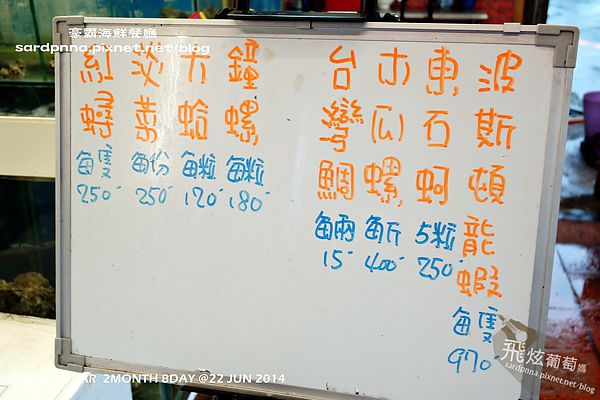 豪霸海鮮餐廳
sardpnna.pixnet.net/blog
波斯頓龍蝦
每隻
970
東石蚵
5粒
250
木瓜螺
每斤
400
台灣鯛
每兩
15
鐘螺
每粒
180
大蛤
每粒
120
淡菜
每份
250
紅蟳
每隻
250
飛炫葡萄媽
sardpnna.pixnet.net/blog
2MONTH 8DAY @22 JUN 2014